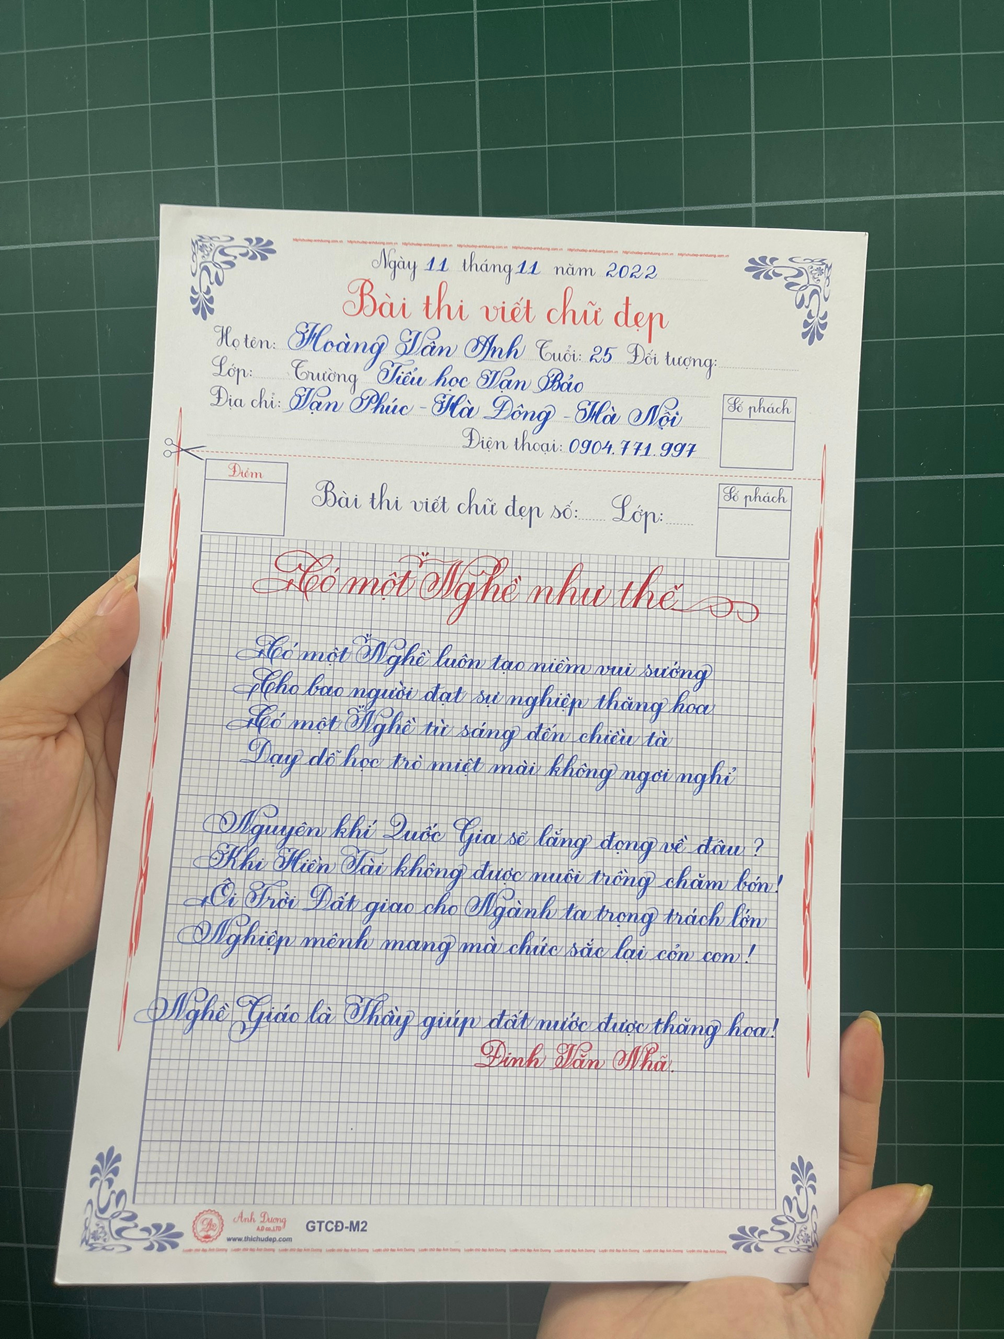 Ngày 11 tháng 11 năm 2022
Bài thi viết chữ đẹp
Họ tên: Hoàng Vân Anh Tuổi: 25 Đối tượng:
Lớp: Trường Tiểu học Vạn Bảo
Địa chỉ: Vạn Phúc - Hà Đông - Hà Nội
Số phách
Điện thoại: 0904.771.997
Điểm
Bài thi viết chữ đẹp số: Lớp:
Số phách
Có một Nghề như thế
Có một Nghề luôn tạo niềm vui sướng
Cho bao người đạt sự nghiệp thăng hoa
Có một Nghề từ sáng đến chiều tà
Dạy dỗ học trò miệt mài không ngơi nghỉ
Nguyên khí Quốc Gia sẽ lắng đọng về đâu ?
Khi Hiền Tài không được nuôi trồng chăm bón!
Ôi Trời Đất giao cho Ngành ta trọng trách lớn
Nghiệp mênh mang mà chúc sắc lại cỏn con !
Nghề Giáo là Thầy giúp đất nước được thăng hoa!
Đinh Văn Nhã.
Ánh Dương
www.thichudep.com
GTCĐ-M2